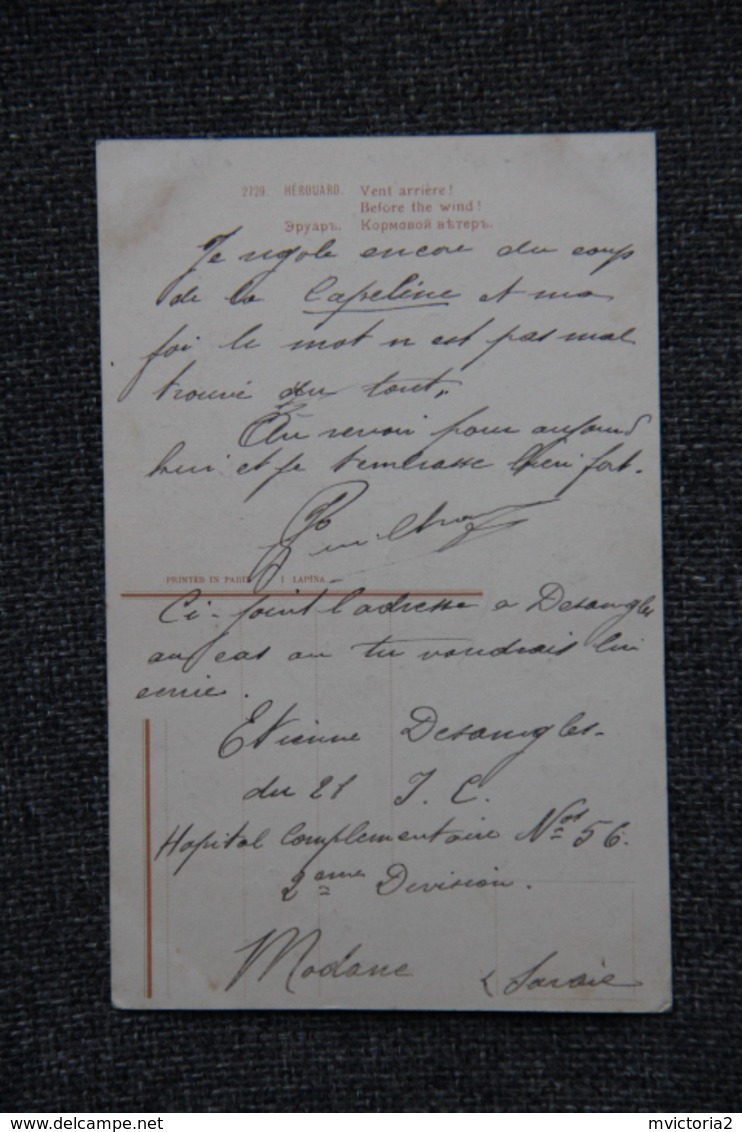 2729. HÉROUARD. Vent arrière!
Before the wind!
Эруаръ. Кормовой вѣтеръ.
Je rigole encore du coup
de la Capeline et ma
foi le mot n est pas mal
trouvé du tout.
Au revoir pour aujourd
hui et je t'embrasse bien fort.
PRINTED IN PARIS I. LAPINA.
Ci-joint l'adresse a Desangles
au cas ou tu voudrais lui
Etienne Desangles.
du 21 I. C.
Hopital Complementaire Nos 56.
2eme Division.
Modane Savoie
delcampe.net
mvictoria2